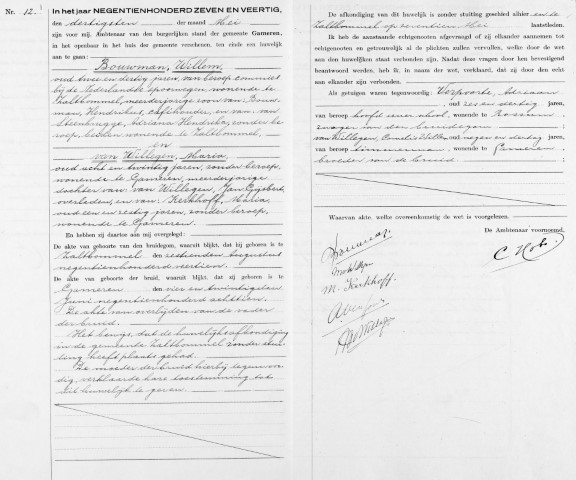 Nr. 12.
In het jaar NEGENTIENHONDERD ZEVEN EN VEERTIG,
den dertigsten der maand Mei
zijn voor mij, Ambtenaar van den burgerlijken stand der gemeente Gameren,
in het openbaar in het huis der gemeente verschenen, ten einde een huwelijk
aan te gaan:
Bouwman, Willem,
oud twee en dertig jaren, van beroep commies
bij de Nederlandse spoorwegen, wonende te
Zaltbommel, meerderjarige zoon van Bouw-
man, Hendrikus, cafehouder, en van, van
Steenbrugge, Adriana Hendrika, zonder be-
roep, beiden wonende te Zaltbommel,
en
van Willigen, Maria,
oud acht en twintig jaren, zonder beroep,
wonende te Gameren, meerderjarige
dochter van, van Willigen, Jan Gijsbert,
overleden, en van, Kerkhoff, Maria,
oud een en zestig jaren, zonder beroep,
wonende te Gameren.
En hebben zij daartoe aan mij overgelegd:
De akte van geboorte van den bruidegom, waaruit blijkt, dat hij geboren is te
Zaltbommel den zestienden Augustus
negentienhonderd veertien.
De akte van geboorte der bruid, waaruit blijkt, dat zij geboren is te
Gameren den vier en twintigsten
Juni negentienhonderd achttien.
De akte van overlijden van de vader
der bruid.
Het bewijs, dat de huwelijksafkondiging
in de gemeente Zaltbommel zonder stui-
ting heeft plaats gehad.
De moeder der bruid hierbij tegenwoor-
dig, verklaarde hare toestemming tot
dit huwelijk te geven.
De afkondiging van dit huwelijk is zonder stuiting geschied alhier en te
Zaltbommel op zeventien Mei laatstleden.
Ik heb de aanstaande echtgenooten afgevraagd of zij elkander aannemen tot
echtgenooten en getrouwelijk al de plichten zullen vervullen, welke door de wet
aan den huwelijken staat verbonden zijn. Nadat deze vragen door hen bevestigend
beantwoord werden, heb ik, in naam der wet, verklaard, dat zij door den echt
aan elkander zijn verbonden.
Als getuigen waren tegenwoordig: Verpoorte, Adriaan
, oud zes en dertig jaren,
van beroep hoofd ener school, wonende te Rossum
zwager van den bruidegom
van Willigen, Cornelis Willem, oud negen en dertig jaren,
van beroep timmerman, wonende te Gameren
broeder van de bruid
Waarvan akte, welke overeenkomstig de wet is voorgelezen.
De Ambtenaar voornoemd,
M. Kerkhoff.